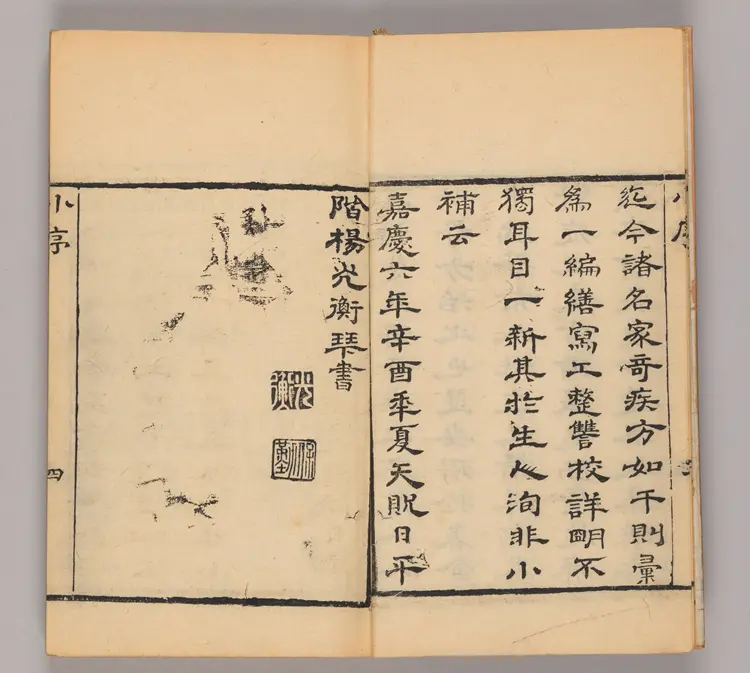 小序
迄今諸名家奇疾方如干則彙
為一編繕寫工整讐校詳明不
獨耳目一新其於生人洵非小
補云
嘉慶六年辛酉季夏天貺日平
階楊光衡琴書
光衡
小序
四